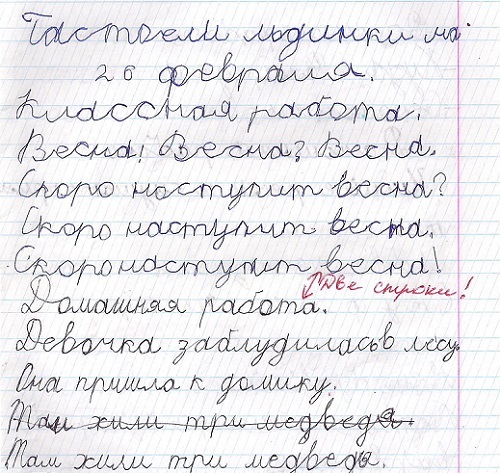 льдинки на
26 февраля.
Классная работа.
Весна! Весна? Весна.
Скоро наступит весна?
Скоро наступит весна.
Скоронаступит весна!
Две строки!
Домашняя работа.
Девочка заблудиласьв лесу.
Она пришла к домику.
Там жили три медведя.
Там жили три медведя.